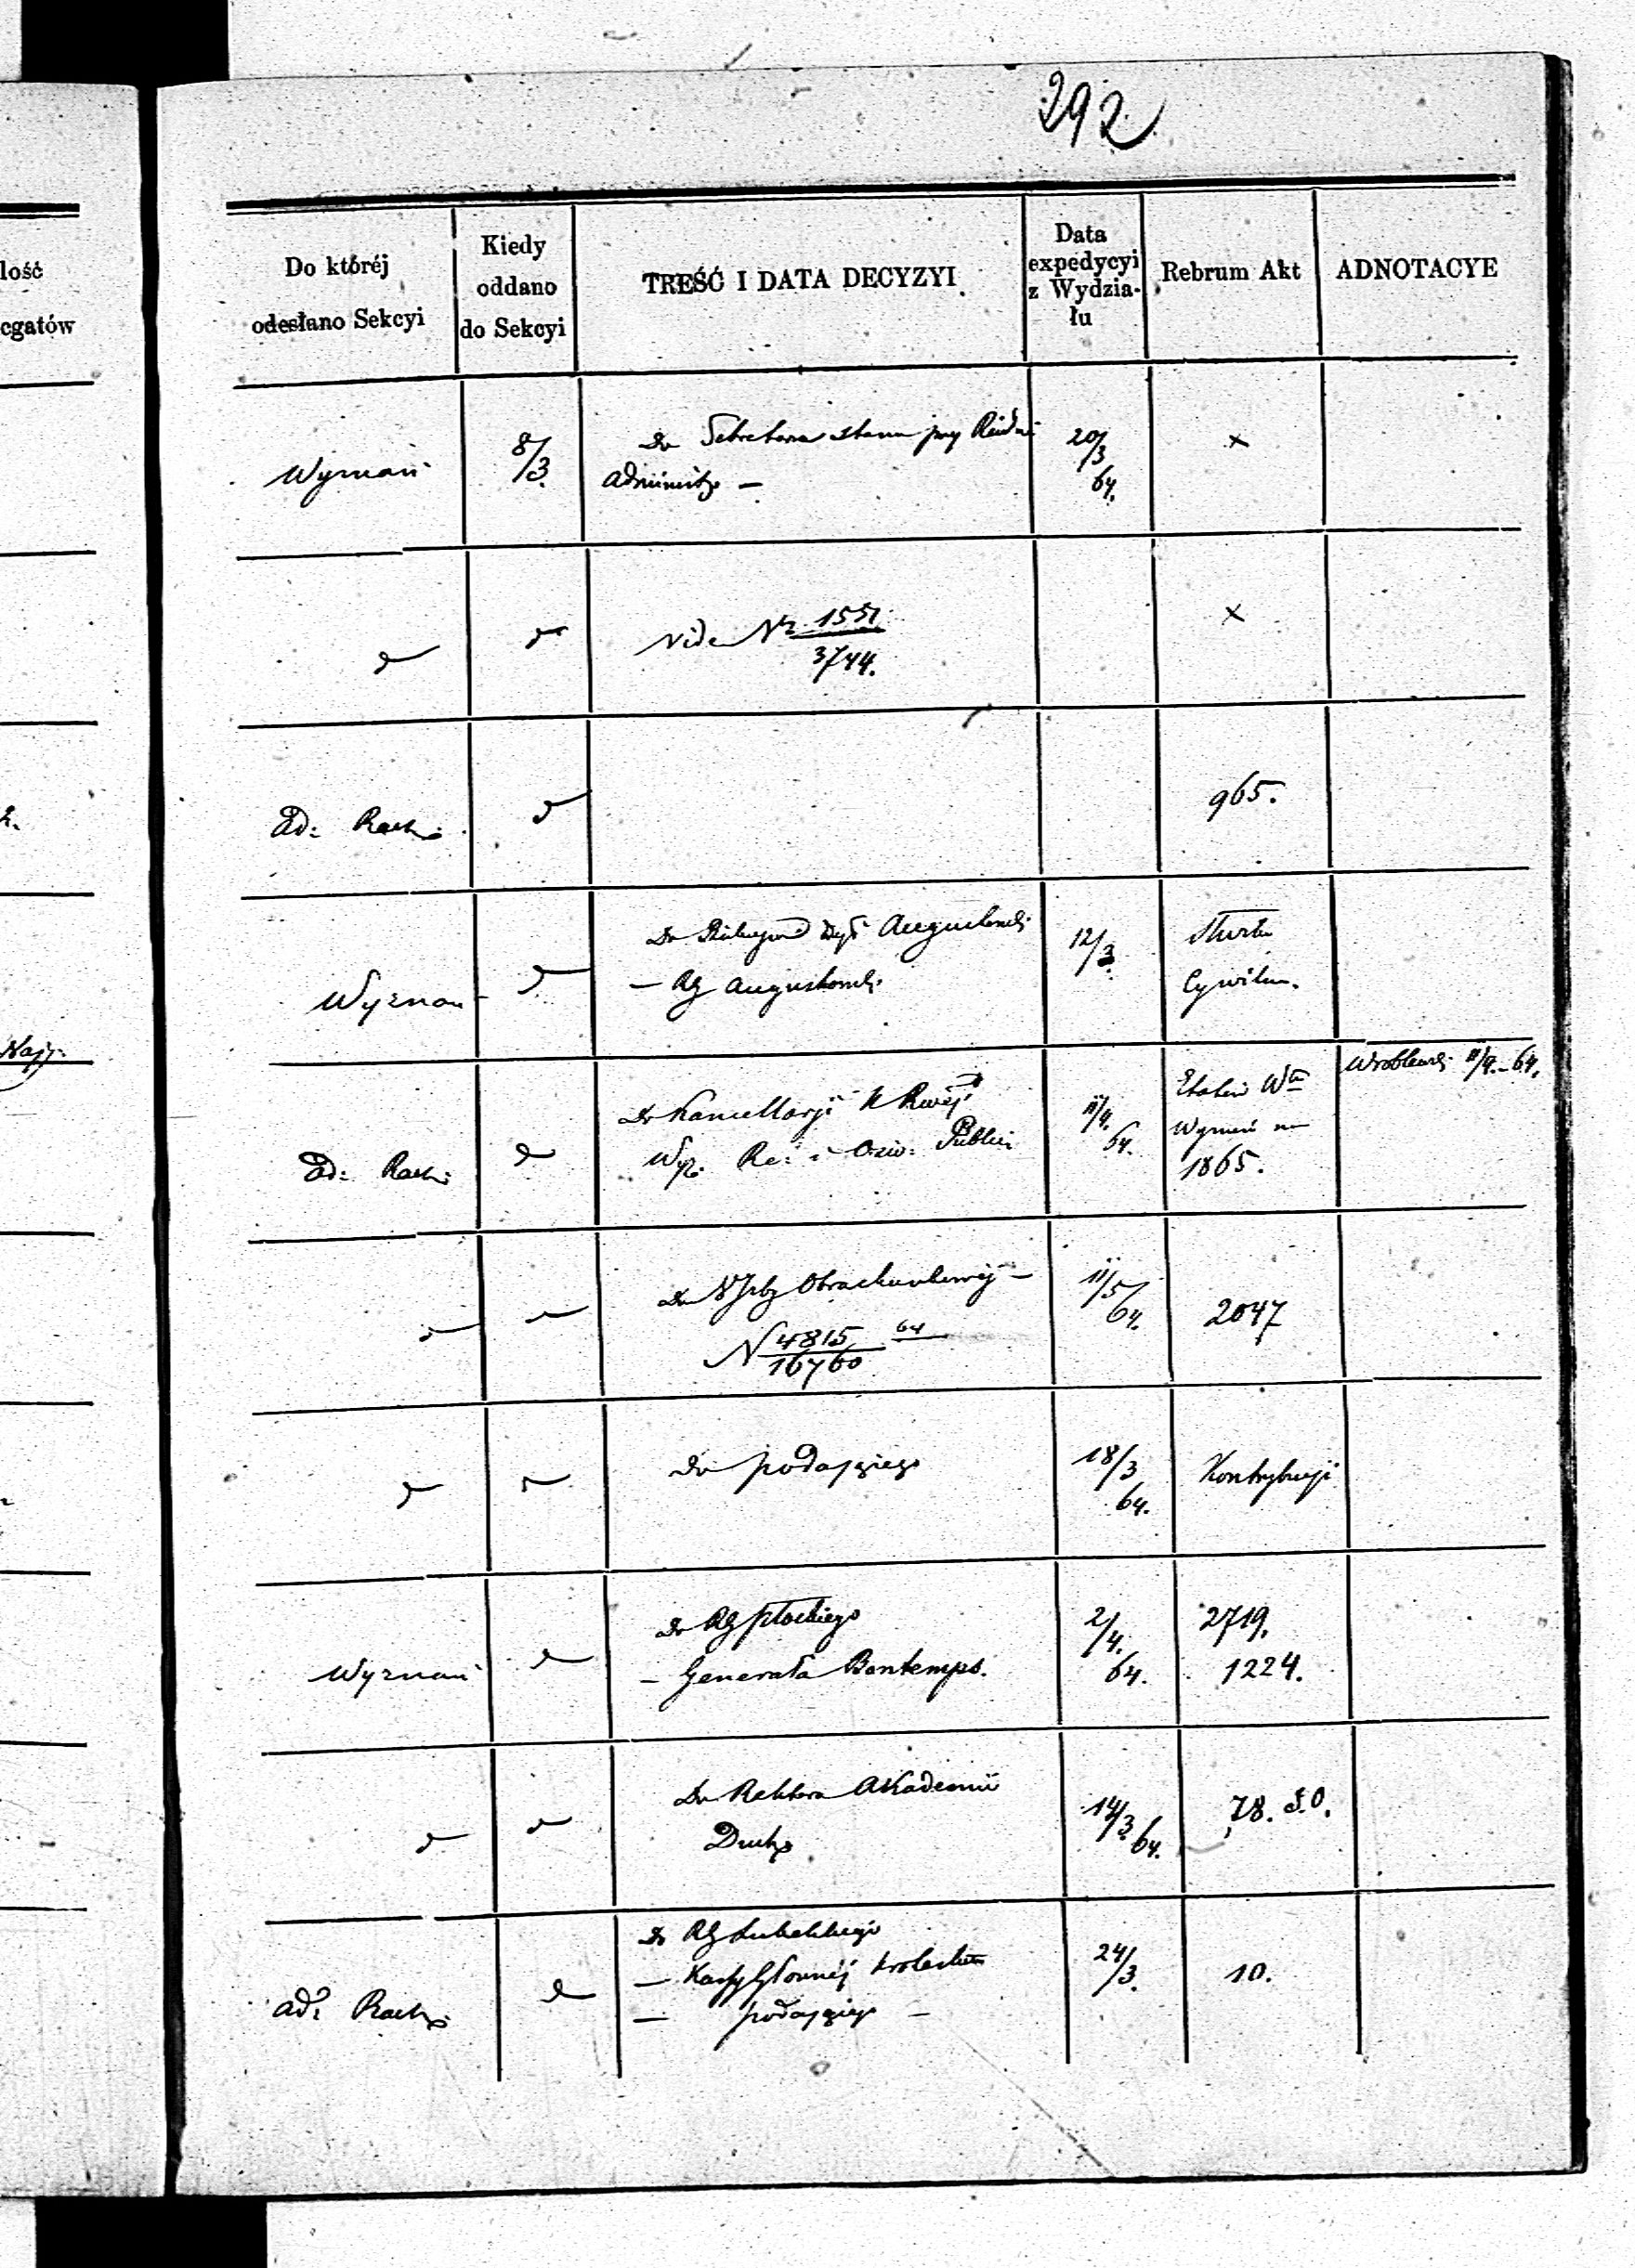 292
lość
cgatów
Do któréj
odesłano Sekcyi
Kiedy
oddano
do Sekcyi
TREŚĆ I DATA DECYZYI
Data
expedycyi
z Wydzia-
łu
Rebrum Akt
ADNOTACYE
Wyznań
8/3.
Do Sekretarza stanu przy Radzie
Administr. —
20/3
64.
×
Vide Nr 1551
3744.
×
Ad: Rach:
965.
Wyznań
Augustowsk:
— RG Augustowsk:
12/3.
Służba
Cywilna.
Najj:
Ad: Rach:
Do Kancellaryi
Wyz. Re: i Ośw: Public:
11/4.
64.
Etatów
Wyznań na
1865.
Wróblewsk: 11/4.-64.
Do Izby Obrachunkowéj —
N 4815 64
16760
11/5
64.
2047
Do podającego
18/3
64.
Kontrybucji
Wyznań
Do RG Płockiego
— Generała Bontemps.
2/4.
64.
2719.
1224.
Do Rektora Akademii
Duch.
14/3 64.
78. S.O.
Ad: Rach:
Do RG Lubelskiego
— Kassy Głównéj Królestwa
— podającego —
24/3.
10.